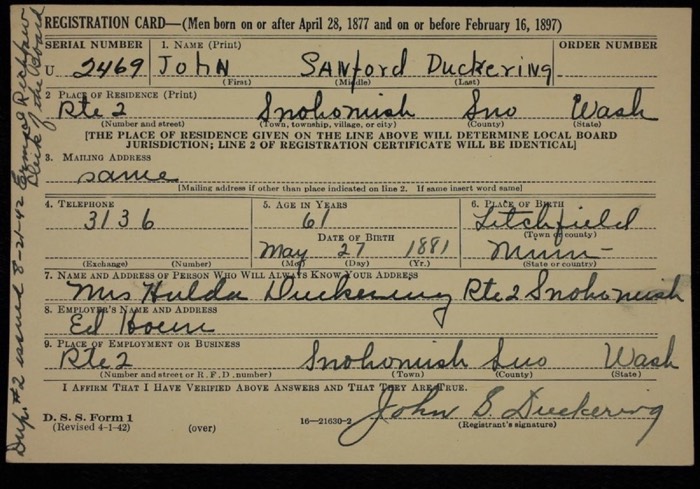 REGISTRATION CARD—(Men born on or after April 28, 1877 and on or before February 16, 1897)
SERIAL NUMBER
1. NAME (Print)
ORDER NUMBER
U 2469
JOHN SANford Duckering
(First) (Middle) (Last)
2 PLACE OF RESIDENCE (Print)
Rte 2 Snohomish Sno Wash
(Number and street) (Town, township, village, or city) (County) (State)
[THE PLACE OF RESIDENCE GIVEN ON THE LINE ABOVE WILL DETERMINE LOCAL BOARD
JURISDICTION; LINE 2 OF REGISTRATION CERTIFICATE WILL BE IDENTICAL]
3. MAILING ADDRESS
same
[Mailing address if other than place indicated on line 2. If same insert word same]
4. TELEPHONE
3136
(Exchange) (Number)
5. AGE IN YEARS
61
DATE OF BIRTH
May 27 1881
(Mo.) (Day) (Yr.)
6. PLACE OF BIRTH
Litchfield
(Town or county)
Minn-
(State or country)
7. NAME AND ADDRESS OF PERSON WHO WILL ALWAYS KNOW YOUR ADDRESS
Mrs Hulda Duckering Rte 2 Snohomish
8. EMPLOYER'S NAME AND ADDRESS
Ed
9. PLACE OF EMPLOYMENT OR BUSINESS
Rte 2 Snohomish Sno Wash
(Number and street or R. F. D. number) (Town) (County) (State)
I AFFIRM THAT I HAVE VERIFIED ABOVE ANSWERS AND THAT THEY ARE TRUE.
John S. Duckering
D. S. S. Form 1
(Revised 4-1-42) (over) 16—21630-2 (Registrant's signature)
Dup. #2 issued 8-21-42
Clerk of the Board